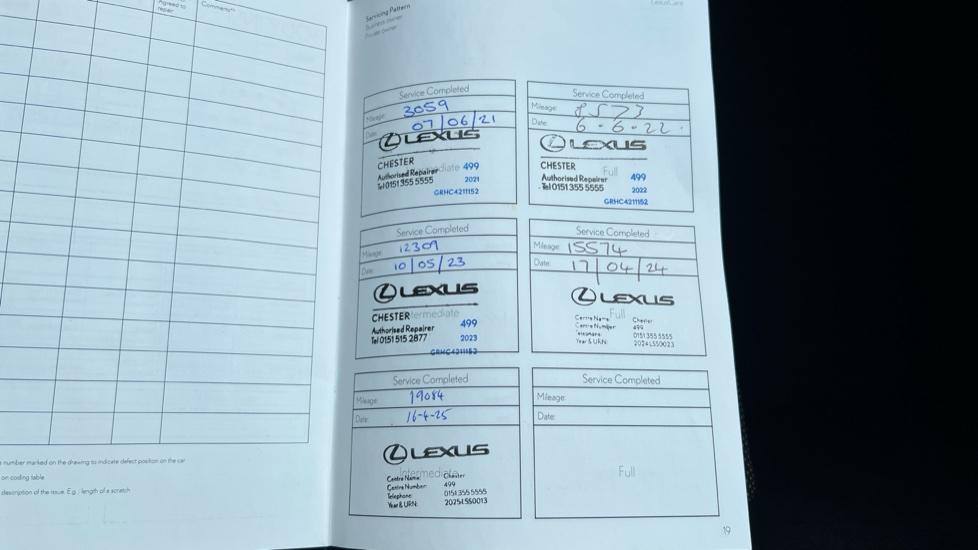 Agreed to
repair
Comments**
number marked on the drawing to indicate defect position on the car
on coding table
description of the issue. E.g.: length of a scratch
Servicing Pattern
Business owner
Private owner
LexusCare
Service Completed
Mileage: 3059
Date: 07/06/21
LEXUS
CHESTER
Intermediate 499
Authorised Repairer
Tel 0151 355 5555 2021
GRHC4211152
Service Completed
Mileage: 8573
Date: 6-6-22.
LEXUS
CHESTER
Full
Authorised Repairer 499
Tel 0151 355 5555 2022
GRHC4211152
Service Completed
Mileage: 12309
Date: 10/05/23
LEXUS
CHESTER Intermediate
Authorised Repairer 499
Tel 0151 515 2877 2023
GRHC4211152
Service Completed
Mileage: 15574
Date: 17/04/24
LEXUS
Full
Centre Name: Chester
Centre Number: 499
Telephone: 0151 355 5555
Year & URN: 2024LS50023
Service Completed
Mileage: 19084
Date: 16-4-25
LEXUS
Intermediate
Centre Name: Chester
Centre Number: 499
Telephone: 0151 355 5555
Year & URN: 2025LS50013
Service Completed
Mileage:
Date:
Full
19